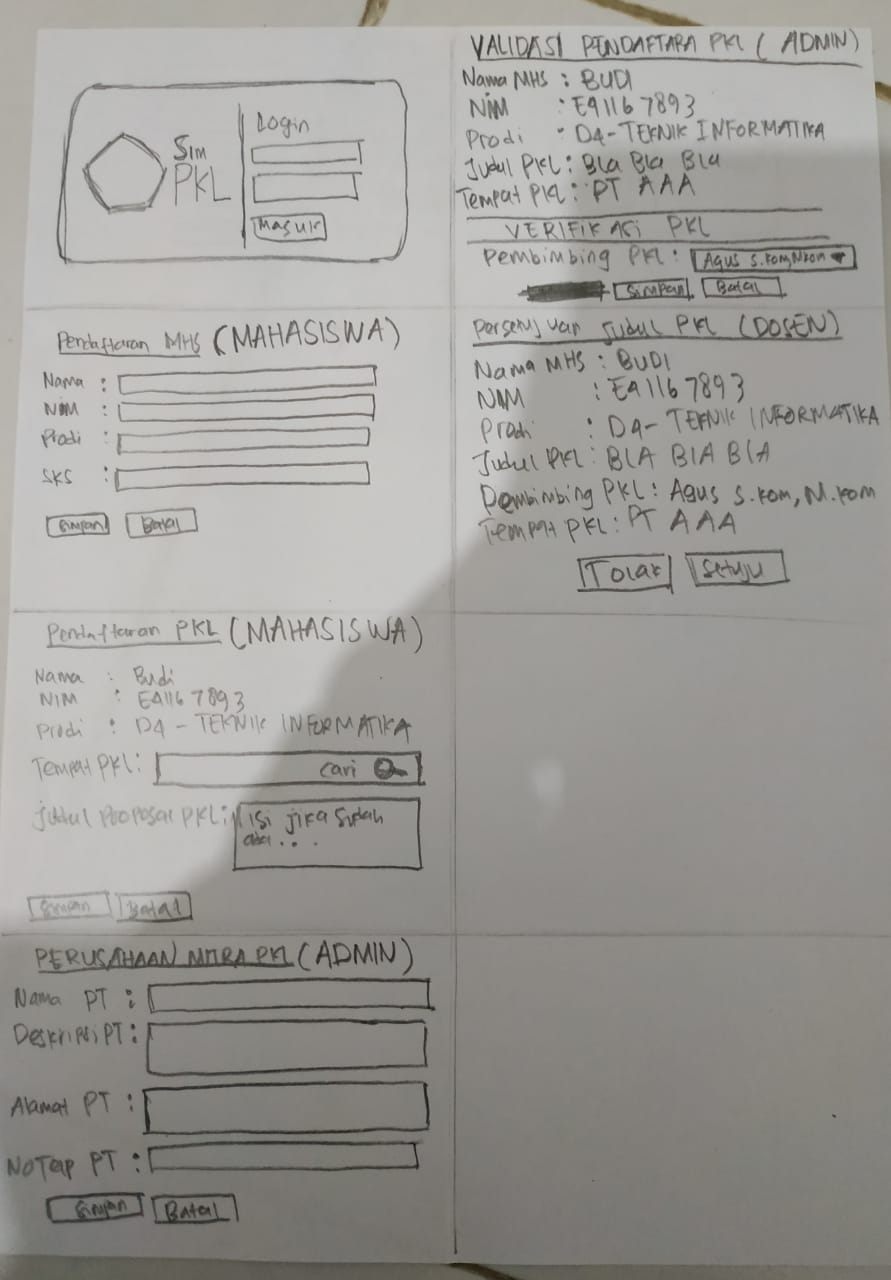 Sim
PKL
Login
Masuk
Pendaftaran MHS (MAHASISWA)
Nama :
NIM :
Prodi :
SKS :
Simpan Batal
Pendaftaran PKL (MAHASISWA)
Nama : Budi
NIM : E41167893
Prodi : D4 - TEKNIK INFORMATIKA
Tempat PKL: cari
Judul Proposal PKL: isi jika sudah
ada . . .
Simpan Batal
PERUSAHAAN MITRA PKL (ADMIN)
Nama PT :
Deskripsi PT :
Alamat PT :
No Telp PT :
Simpan Batal
VALIDASI PENDAFTARA PKL ( ADMIN)
Nama MHS : BUDI
NIM : E41167893
Prodi : D4-TEKNIK INFORMATIKA
Judul PKL : BLa BLa BLa
Tempat PKL : PT AAA
VERIFIKASI PKL
Pembimbing PKL : Agus S.kom,Mkom
Simpan Batal
Persetujuan Judul PKL (DOSEN)
Nama MHS : BUDI
NIM : E41167893
Prodi : D4- TEKNIK INFORMATIKA
Judul PKL : BLA BLA BLA
Pembimbing PKL : Agus S.kom, M.kom
Tempat PKL : PT AAA
Tolak Setuju